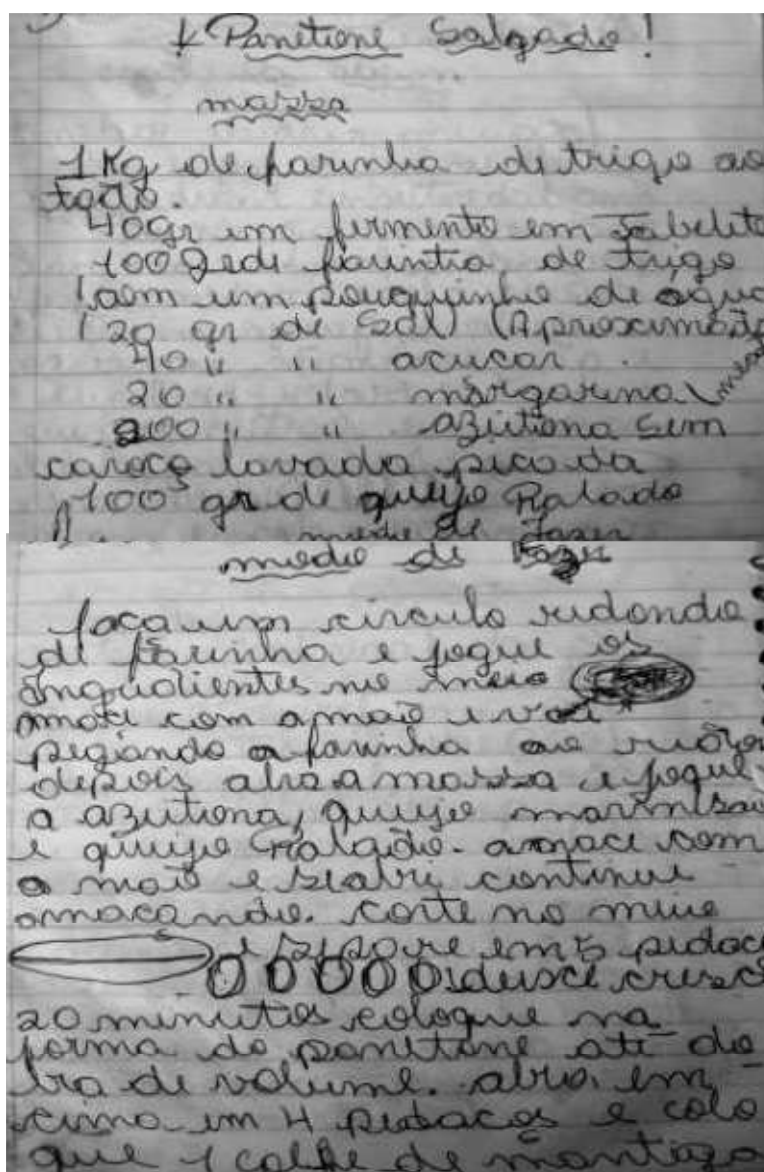 Panetione Salgado!
massa
1 Kg de farinha de trigo ao
todo.
40gr um fermento em Tabelete
100 gr de farintia de trigo
com um pouquinho de agua
20 gr de Sal) (Aproximado
40 " " acucar
20 " " margarina
200 " " azutiona sem
caroço lavada picada
100 gr de queijo Ralado
modo de Fazer
modo de Fazer
faça um circulo redondo
de farinha e jogue os
ingredientes no meio
amace com a mão e vai
pegando a farinha ao
depois abra a massa e jogue
a azutiona, queijo
e queijo Ralado. amace com
a mão e continue
amaçando. corte no meio
e separe em 5 pedaci
deixe cresce
20 minutos coloque na
forma do panetone até do
bra de volume. abra em
cima em 4 pedaços e colo
que 1 colhe de mantiga